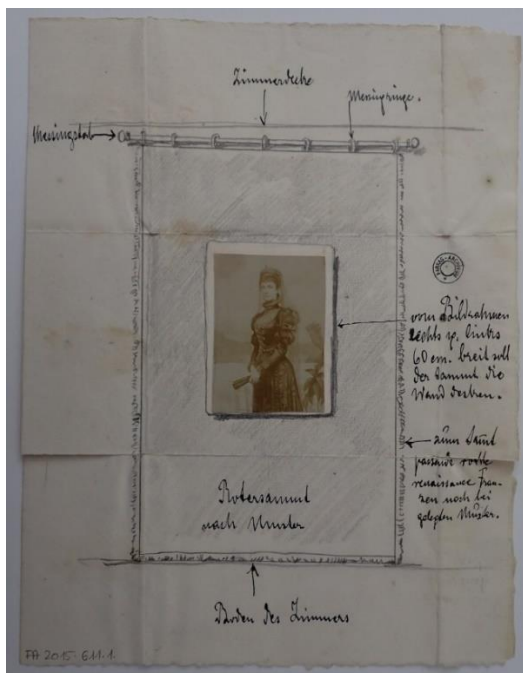 Zimmerdecke
Messingringe.
Messingstab
vom Bildrahmen
rechts u. links
60 cm. breit soll
der Sammt die
Wand decken.
zum Samt
passende rothe
renaissance Fran-
zen nach bei
gelegten Muster.
Rotersammt
nach Muster
Boden des Zimmers
FA 2015-611-1.